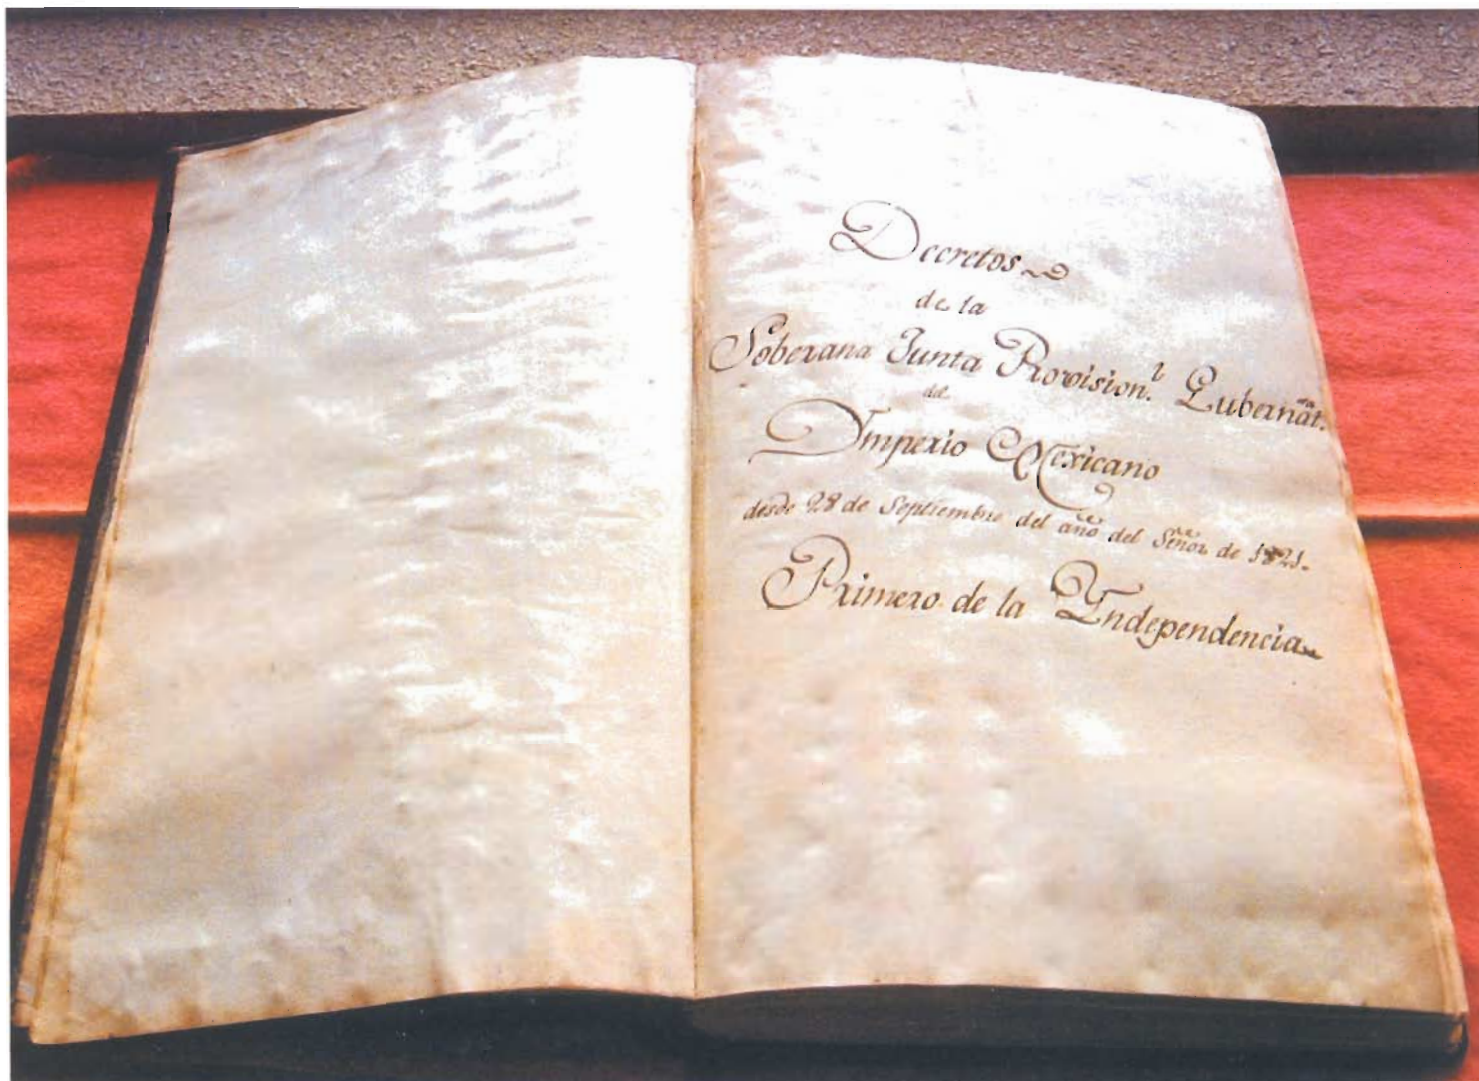 Decretos
de la
Soberana Junta Provision.l Gubernat.va
del
Ymperio Mexicano
desde 28 de Septiembre del año del Señor de 1821.
Primero de la Yndependencia